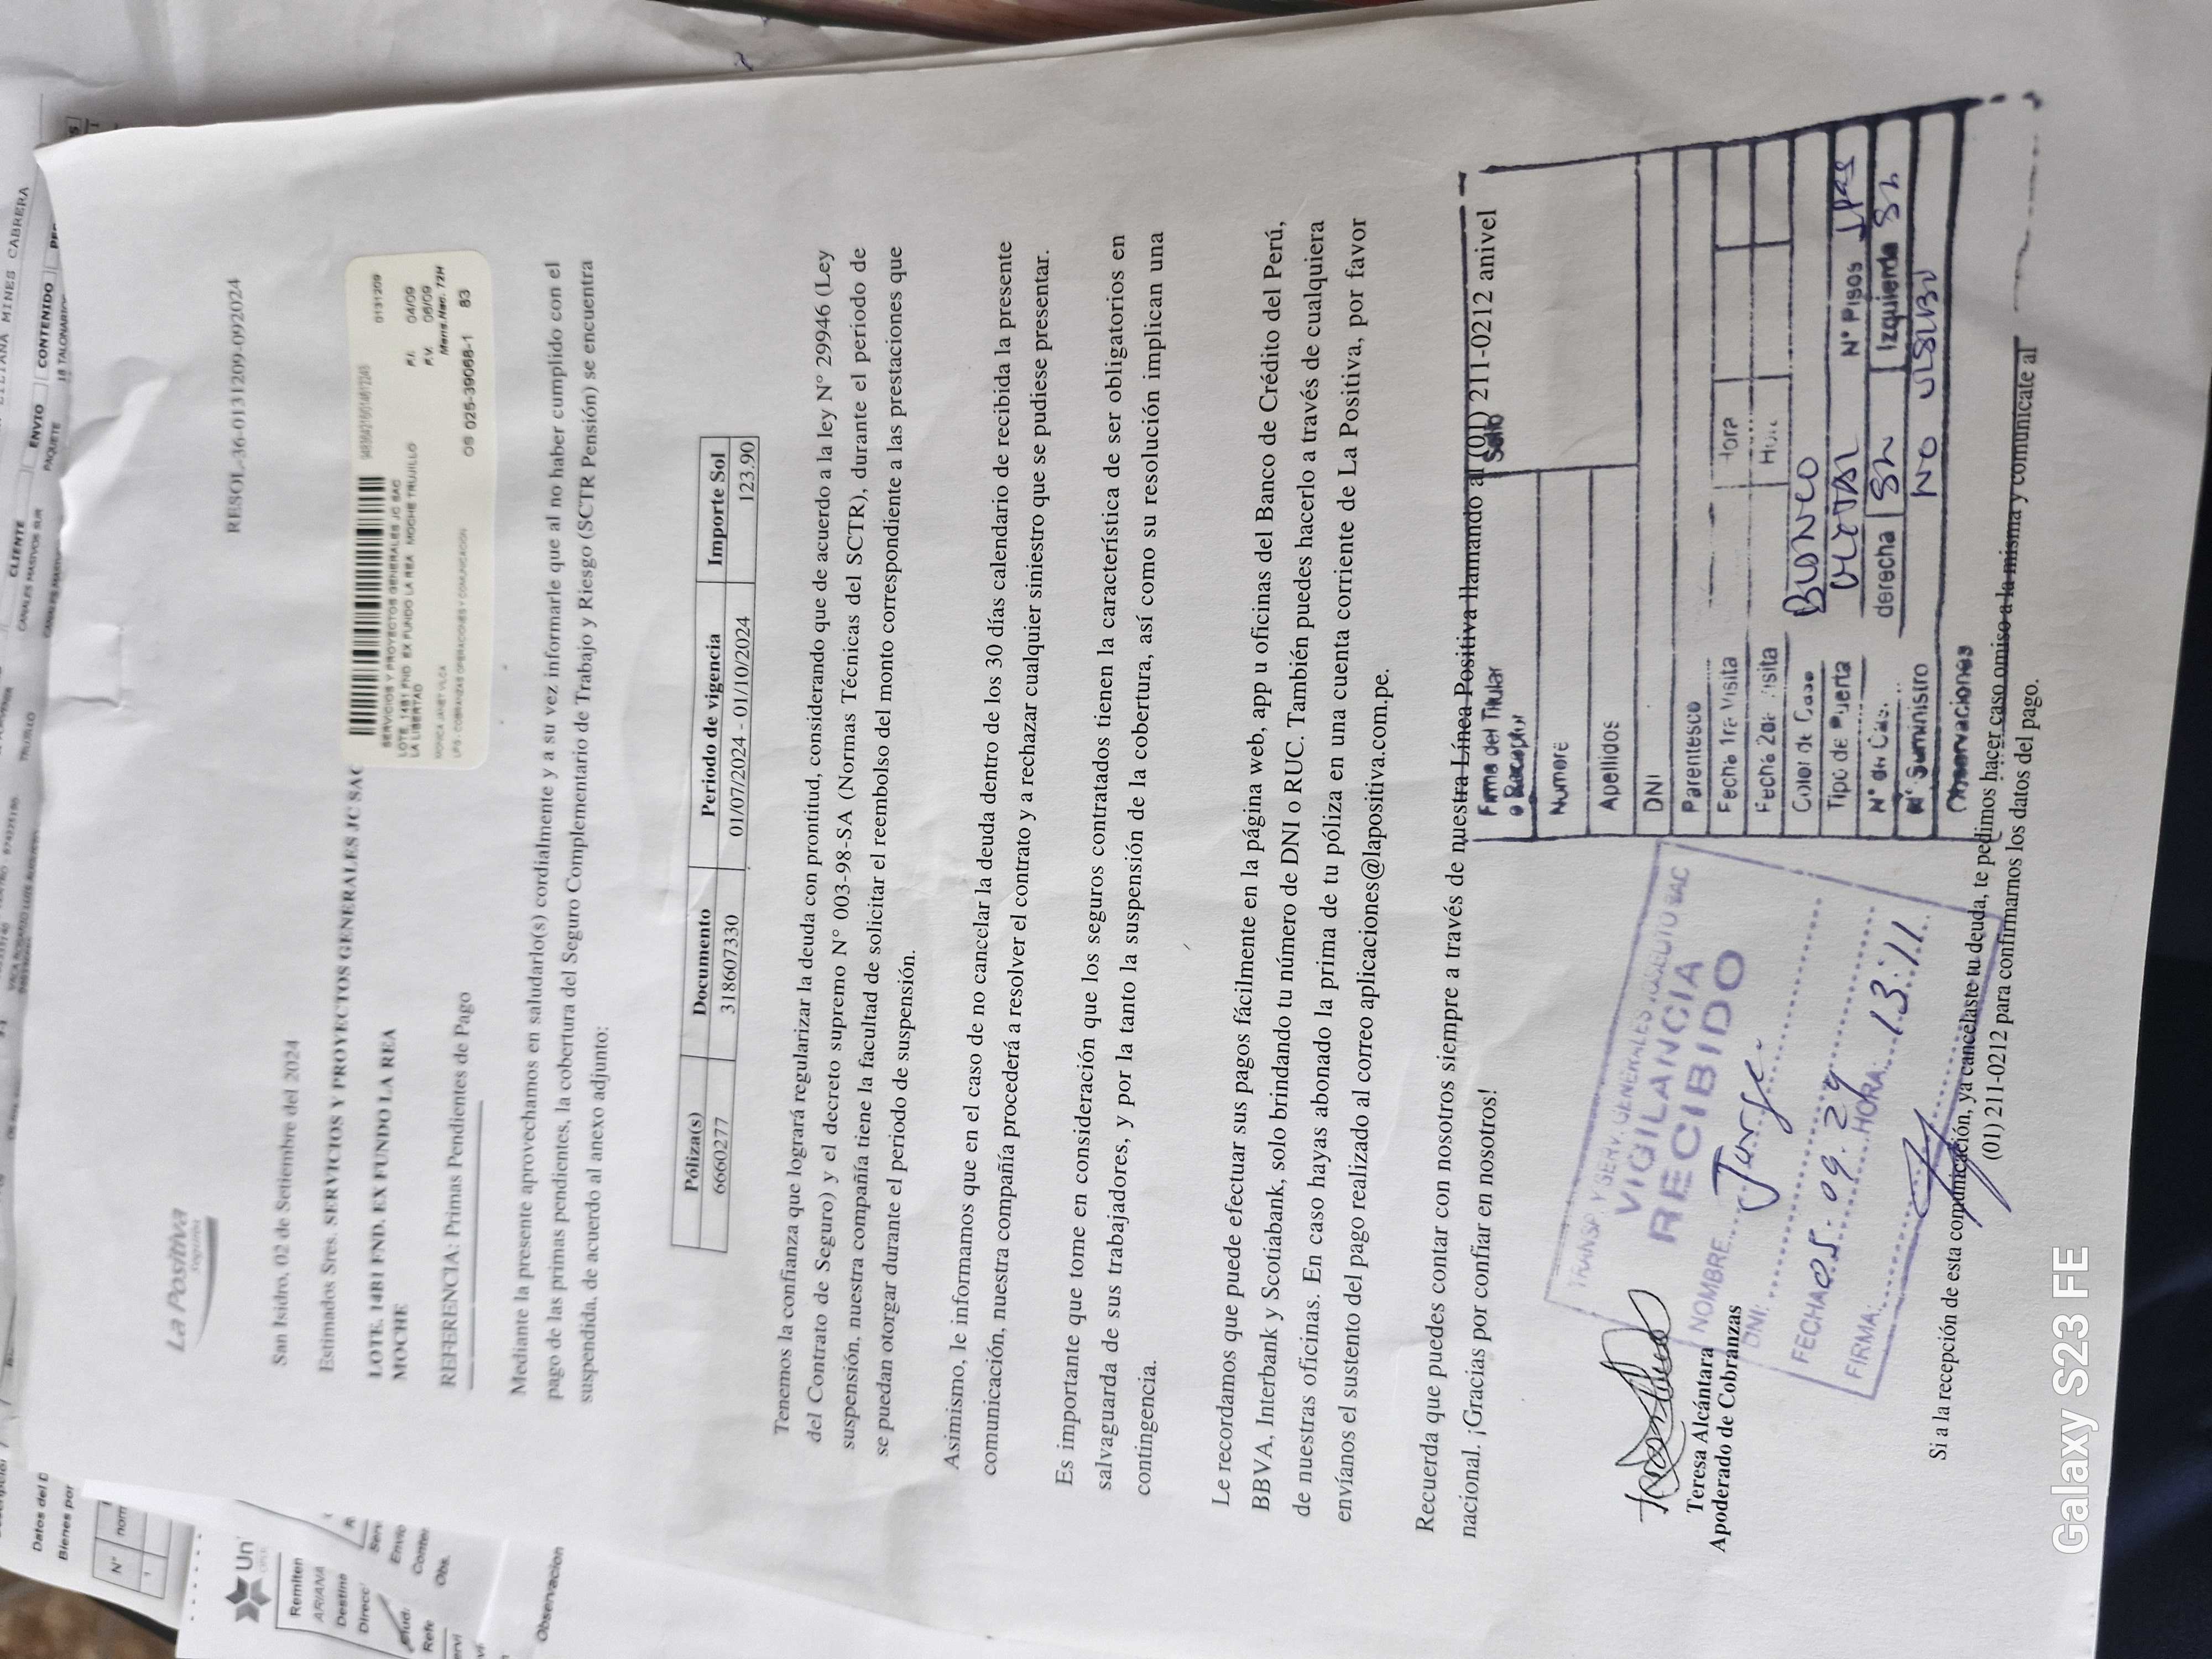 La Positiva
Seguros
RESOL-36-0131209-092024
San Isidro, 02 de Setiembre del 2024
Estimados Sres. SERVICIOS Y PROYECTOS GENERALES JC SAC
LOTE. 14B1 FND. EX FUNDO LA REA
MOCHE
0131209
SERVICIOS Y PROYECTOS GENERALES JC SAC
LOTE. 14B1 FND EX FUNDO LA REA MOCHE TRUJILLO
LA LIBERTAD
F.I. 04/09
F.V. 06/09
Mens.Nac. 72H
LPG - COBRANZAS OPERACIONES Y COMUNICACION
OS 025-39068-1 83
REFERENCIA: Primas Pendientes de Pago
Mediante la presente aprovechamos en saludarlo(s) cordialmente y a su vez informarle que al no haber cumplido con el
pago de las primas pendientes, la cobertura del Seguro Complementario de Trabajo y Riesgo (SCTR Pensión) se encuentra
suspendida, de acuerdo al anexo adjunto:
Póliza(s) Documento Periodo de vigencia Importe Sol
6660277 318607330 01/07/2024 - 01/10/2024 123.90
Tenemos la confianza que logrará regularizar la deuda con prontitud, considerando que de acuerdo a la ley N° 29946 (Ley
del Contrato de Seguro) y el decreto supremo N° 003-98-SA (Normas Técnicas del SCTR), durante el periodo de
suspensión, nuestra compañía tiene la facultad de solicitar el reembolso del monto correspondiente a las prestaciones que
se puedan otorgar durante el periodo de suspensión.
Asimismo, le informamos que en el caso de no cancelar la deuda dentro de los 30 días calendario de recibida la presente
comunicación, nuestra compañía procederá a resolver el contrato y a rechazar cualquier siniestro que se pudiese presentar.
Es importante que tome en consideración que los seguros contratados tienen la característica de ser obligatorios en
salvaguarda de sus trabajadores, y por la tanto la suspensión de la cobertura, así como su resolución implican una
contingencia.
Le recordamos que puede efectuar sus pagos fácilmente en la página web, app u oficinas del Banco de Crédito del Perú,
BBVA, Interbank y Scotiabank, solo brindando tu número de DNI o RUC. También puedes hacerlo a través de cualquiera
de nuestras oficinas. En caso hayas abonado la prima de tu póliza en una cuenta corriente de La Positiva, por favor
envíanos el sustento del pago realizado al correo aplicaciones@lapositiva.com.pe.
Recuerda que puedes contar con nosotros siempre a través de nuestra Línea Positiva llamando al (01) 211-0212 anivel
nacional. ¡Gracias por confiar en nosotros!
Teresa Alcántara
Apoderado de Cobranzas
VIGILANCIA
RECIBIDO
NOMBRE: Jorge
DNI:
FECHA 05.09.24 HORA: 13:11
FIRMA:
Firma del Titular
o Receptor
Sello
Nombre
Apellidos
DNI
Parentesco
Fecha 1ra Visita Hora
Fecha 2da Visita Hora
Color de Casa BLANCO
Tipo de Puerta METAL N° Pisos 1 PAS
derecha SN Izquierda SN
N° Suministro NO VISIBLE
Observaciones
Si a la recepción de esta comunicación, ya cancelaste tu deuda, te pedimos hacer caso omiso a la misma y comunicate al
(01) 211-0212 para confirmarnos los datos del pago.
CLIENTE ENVIO CONTENIDO
CANALES MASIVOS SUR PAQUETE
TRUJILLO
Datos del
Bienes por
N° nom
1
Un
Remiten
ARIANA
Destina
Direcc
Refe
Envío
Obs.
Observacion
Galaxy S23 FE